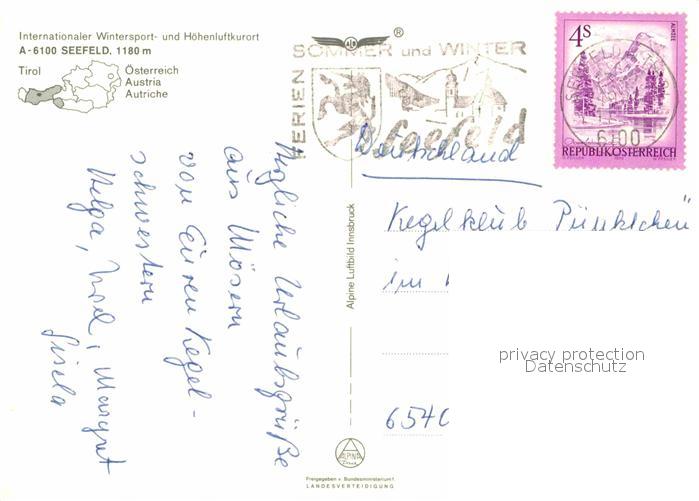 Internationaler Wintersport- und Höhenluftkurort
A-6100 SEEFELD, 1180 m
Tirol
Österreich
Austria
Autriche
®
FERIEN
SOMMER und WINTER
Seefeld
4S
ALMSEE
SEEFELD
6100
REPUBLIK ÖSTERREICH
Deutschland
Kegelklub "Pünktchen"
im
6540
privacy protection
Datenschutz
Urlaubsgrüße
aus Mösern
von Euren Kegel-
schwestern
Helga, Margret
Gisela
Alpine Luftbild Innsbruck
ALPINA
Druck
Freigegeben v. Bundesministerium f.
LANDESVERTEIDIGUNG